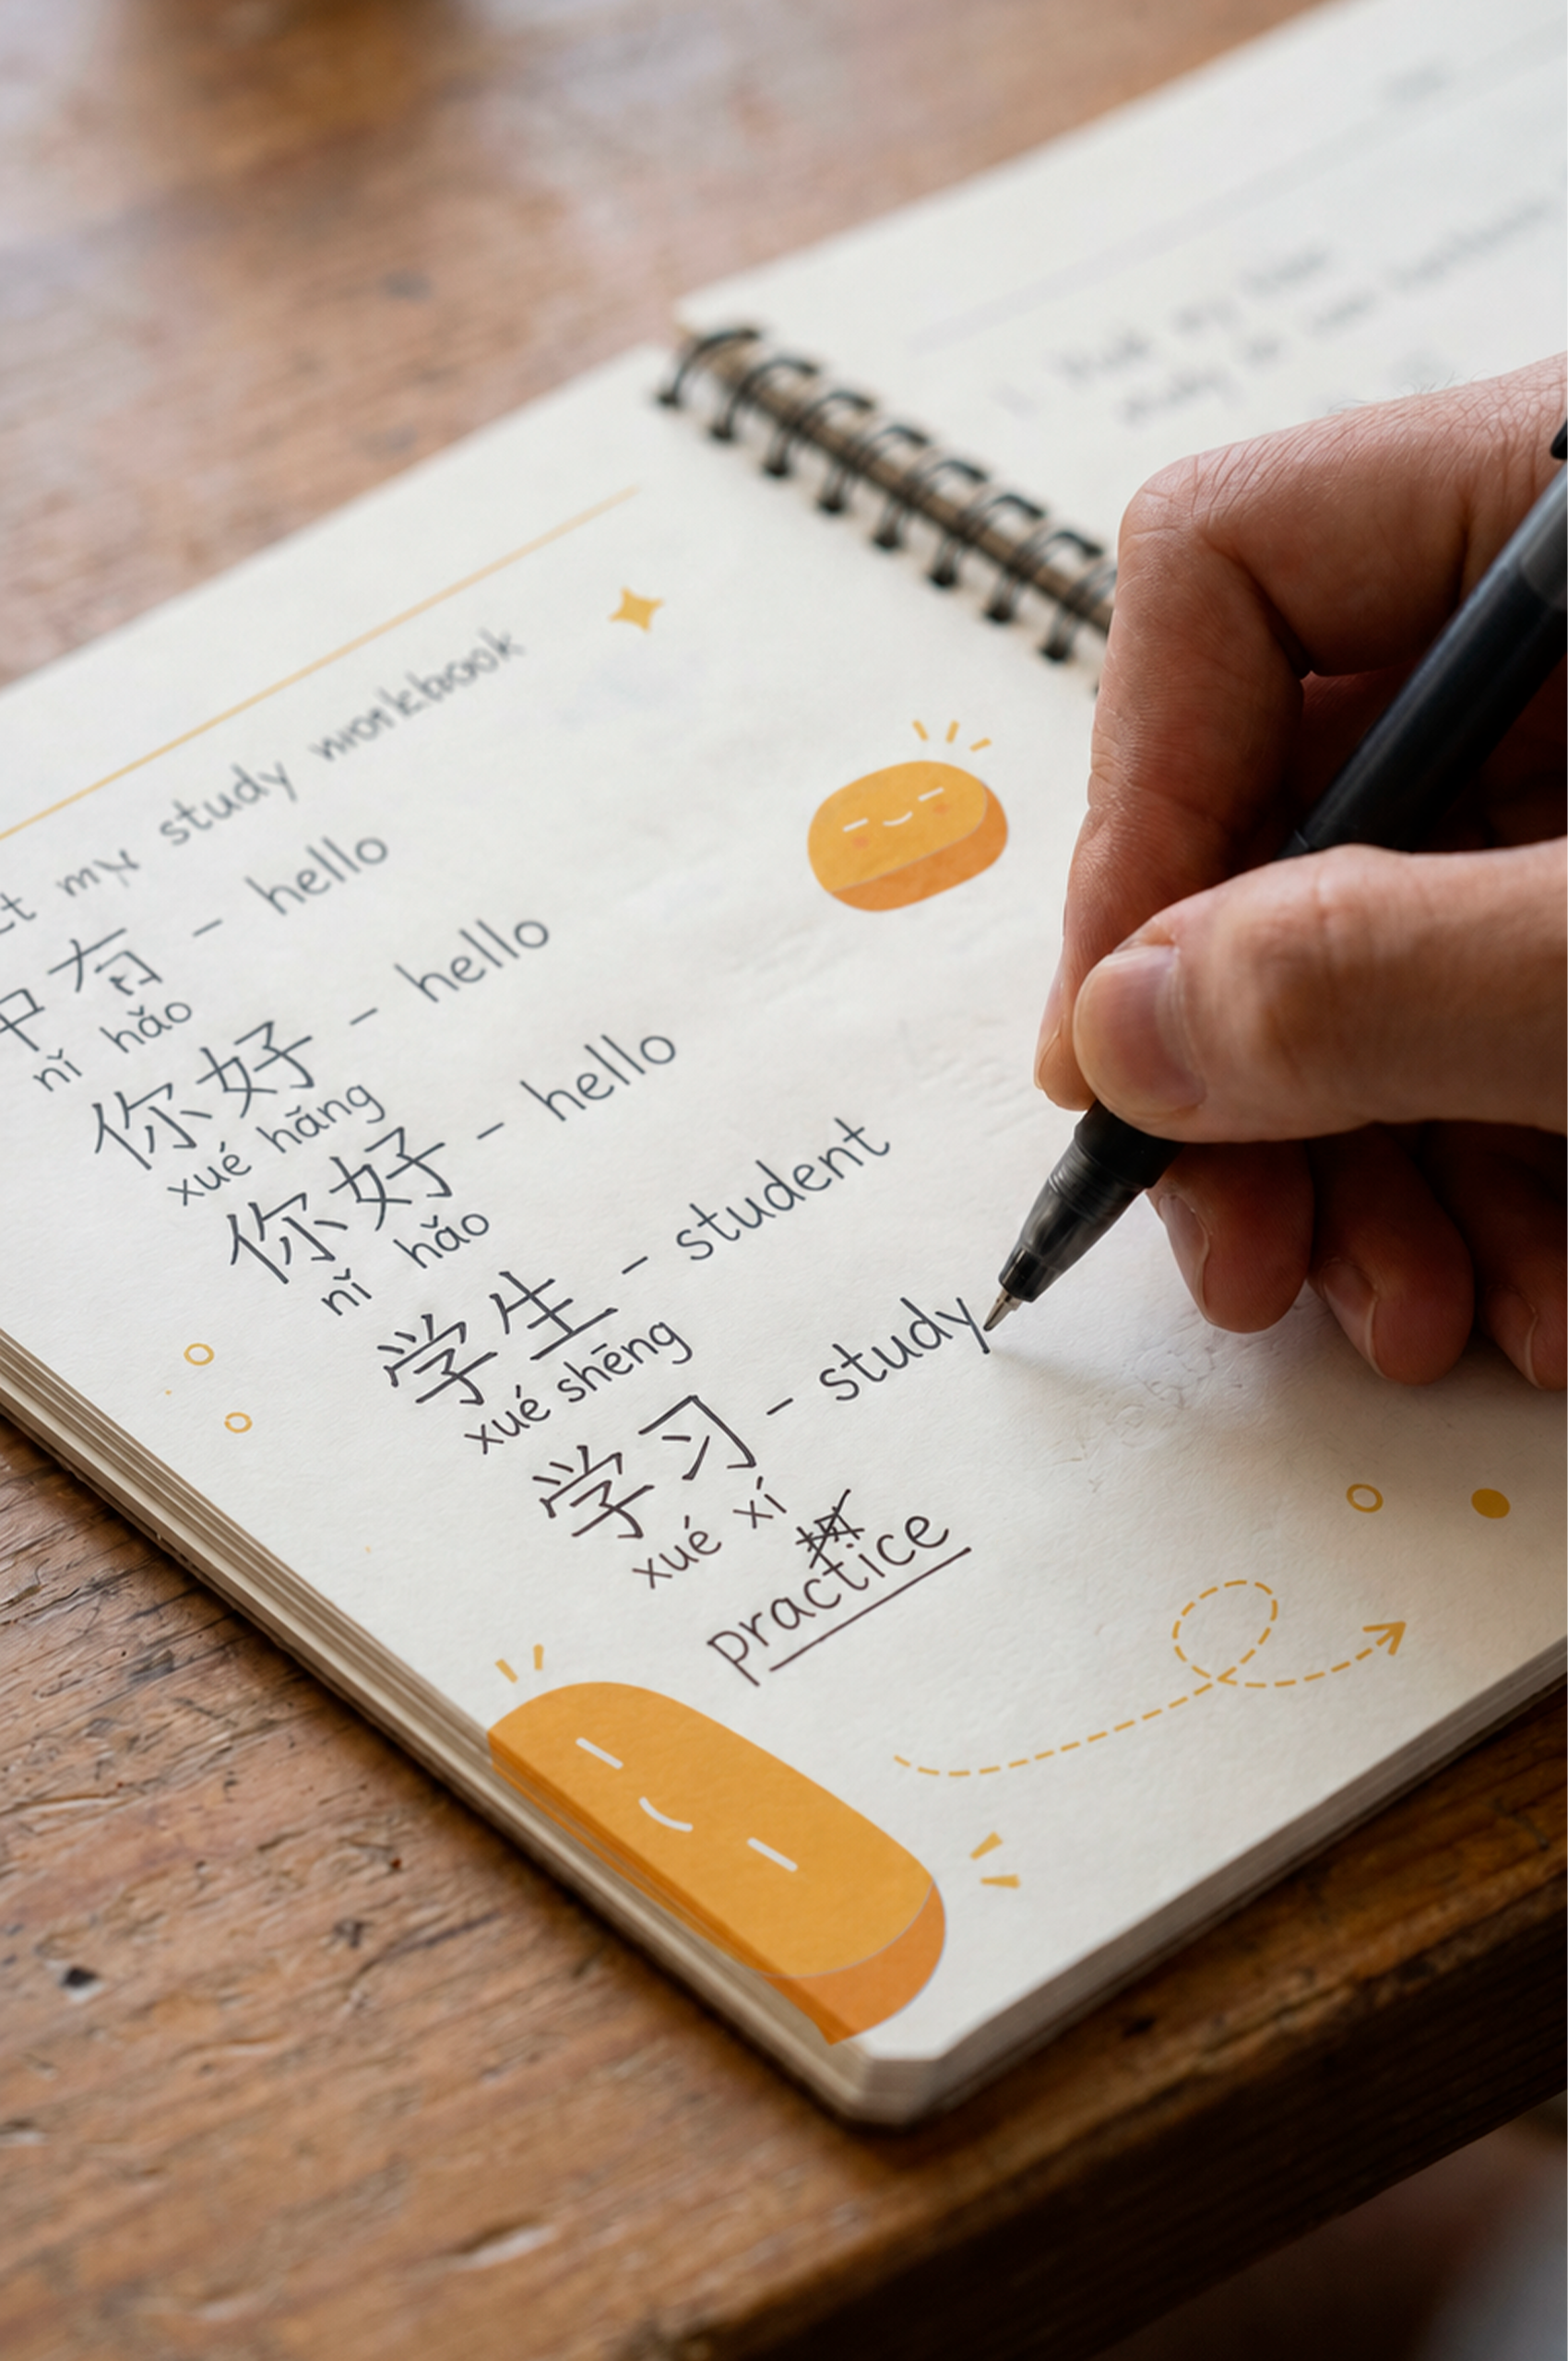 my study workbook
中有 – hello
nǐ hǎo
你好 – hello
xué hāng
你好 – hello
nǐ hǎo
学生 – student
xué shēng
学习 – study
xué xí
practice